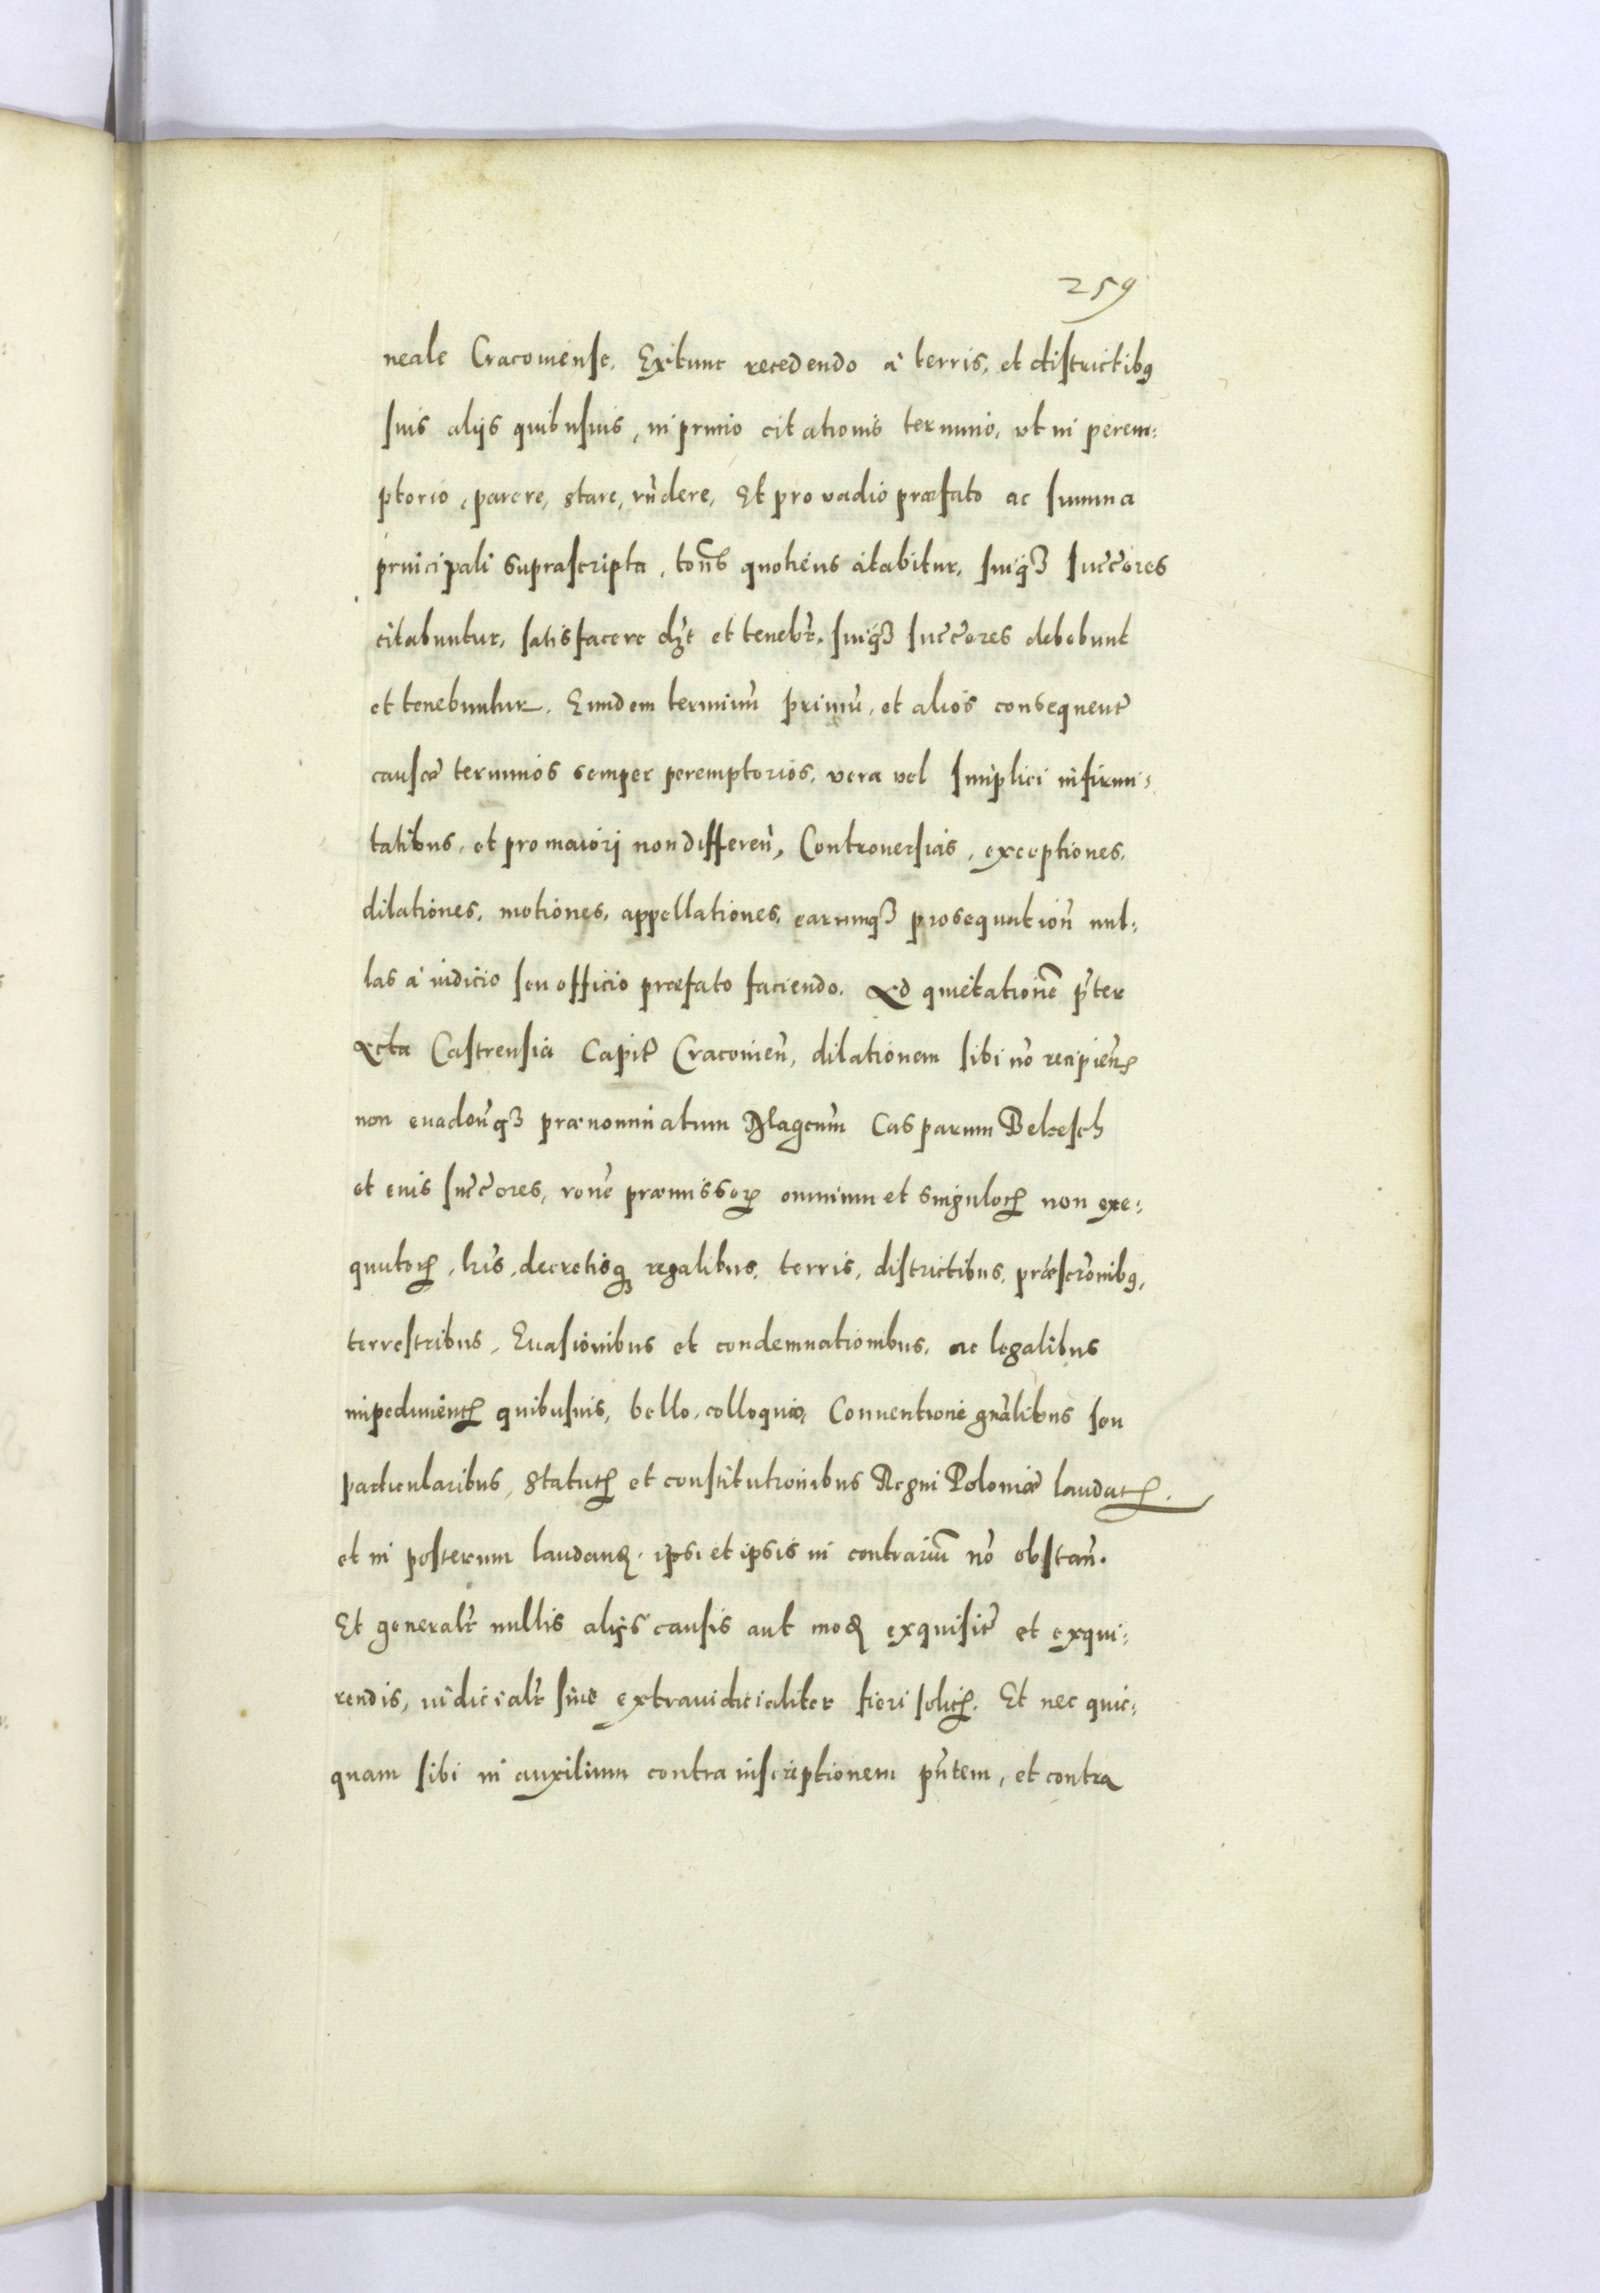 259
neale Cracoviense. Extunc recedendo à terris, et districtibꝰ
suis alijs quibusuis, in primo citationis termino, vt in perem:
ptorio, parere, stare, rn̄dere, Et pro vadio præfato ac summa
principali suprascripta, totie͞s quotiens citabitur, suiqꝫ succ̄ores
citabuntur, satisfacere deb̄t et tenebr̄. suiqꝫ succ̄ores debebunt
et tenebuntur. Eundem terminū primū, et alios consequent̄
causæ terminos semper peremptorios, vera vel simplici infirmi:
tatibus, et pro maiori non differen̄, Controuersias, exceptiones,
dilationes, motiones, appellationes, earumqꝫ prosequution̄ nul:
las à iudicio seu officio præfato faciendo. Ad quietationē p̄ter
Acta Castrensia Capit̄ Cracouien̄, dilationem sibi nō recipien̄
non euaden̄qꝫ prænominatum Magcum̄ Casparum Bekesch
et eius succ̄ores, rone̅ præmissorꝝ omnium et singulorꝝ non exe:
quutorꝝ, lr̄is, decretisqꝫ regalibus, terris, districtibus, præscr̄onibꝰ,
terrestribus, Euasionibus et condemnationibus, ac legalibus
impedimentꝭ quibusuis, bello, colloquio, Conuentione gn̄alibus seu
particularibus, statutꝭ et constitutionibus Regni Poloniæ laudatꝭ.
et in posterum laudanꝭ. ipsi et ipsis in contrariū nō obstan̄.
Et generalr̄ nullis alijs causis aut modꝭ exquisit̄ et exqui:
rendis, iudicialr̄ siue extraiudicialiter fieri solitꝭ. Et nec quic:
quam sibi in auxilium contra inscriptionem pn̄tem, et contra